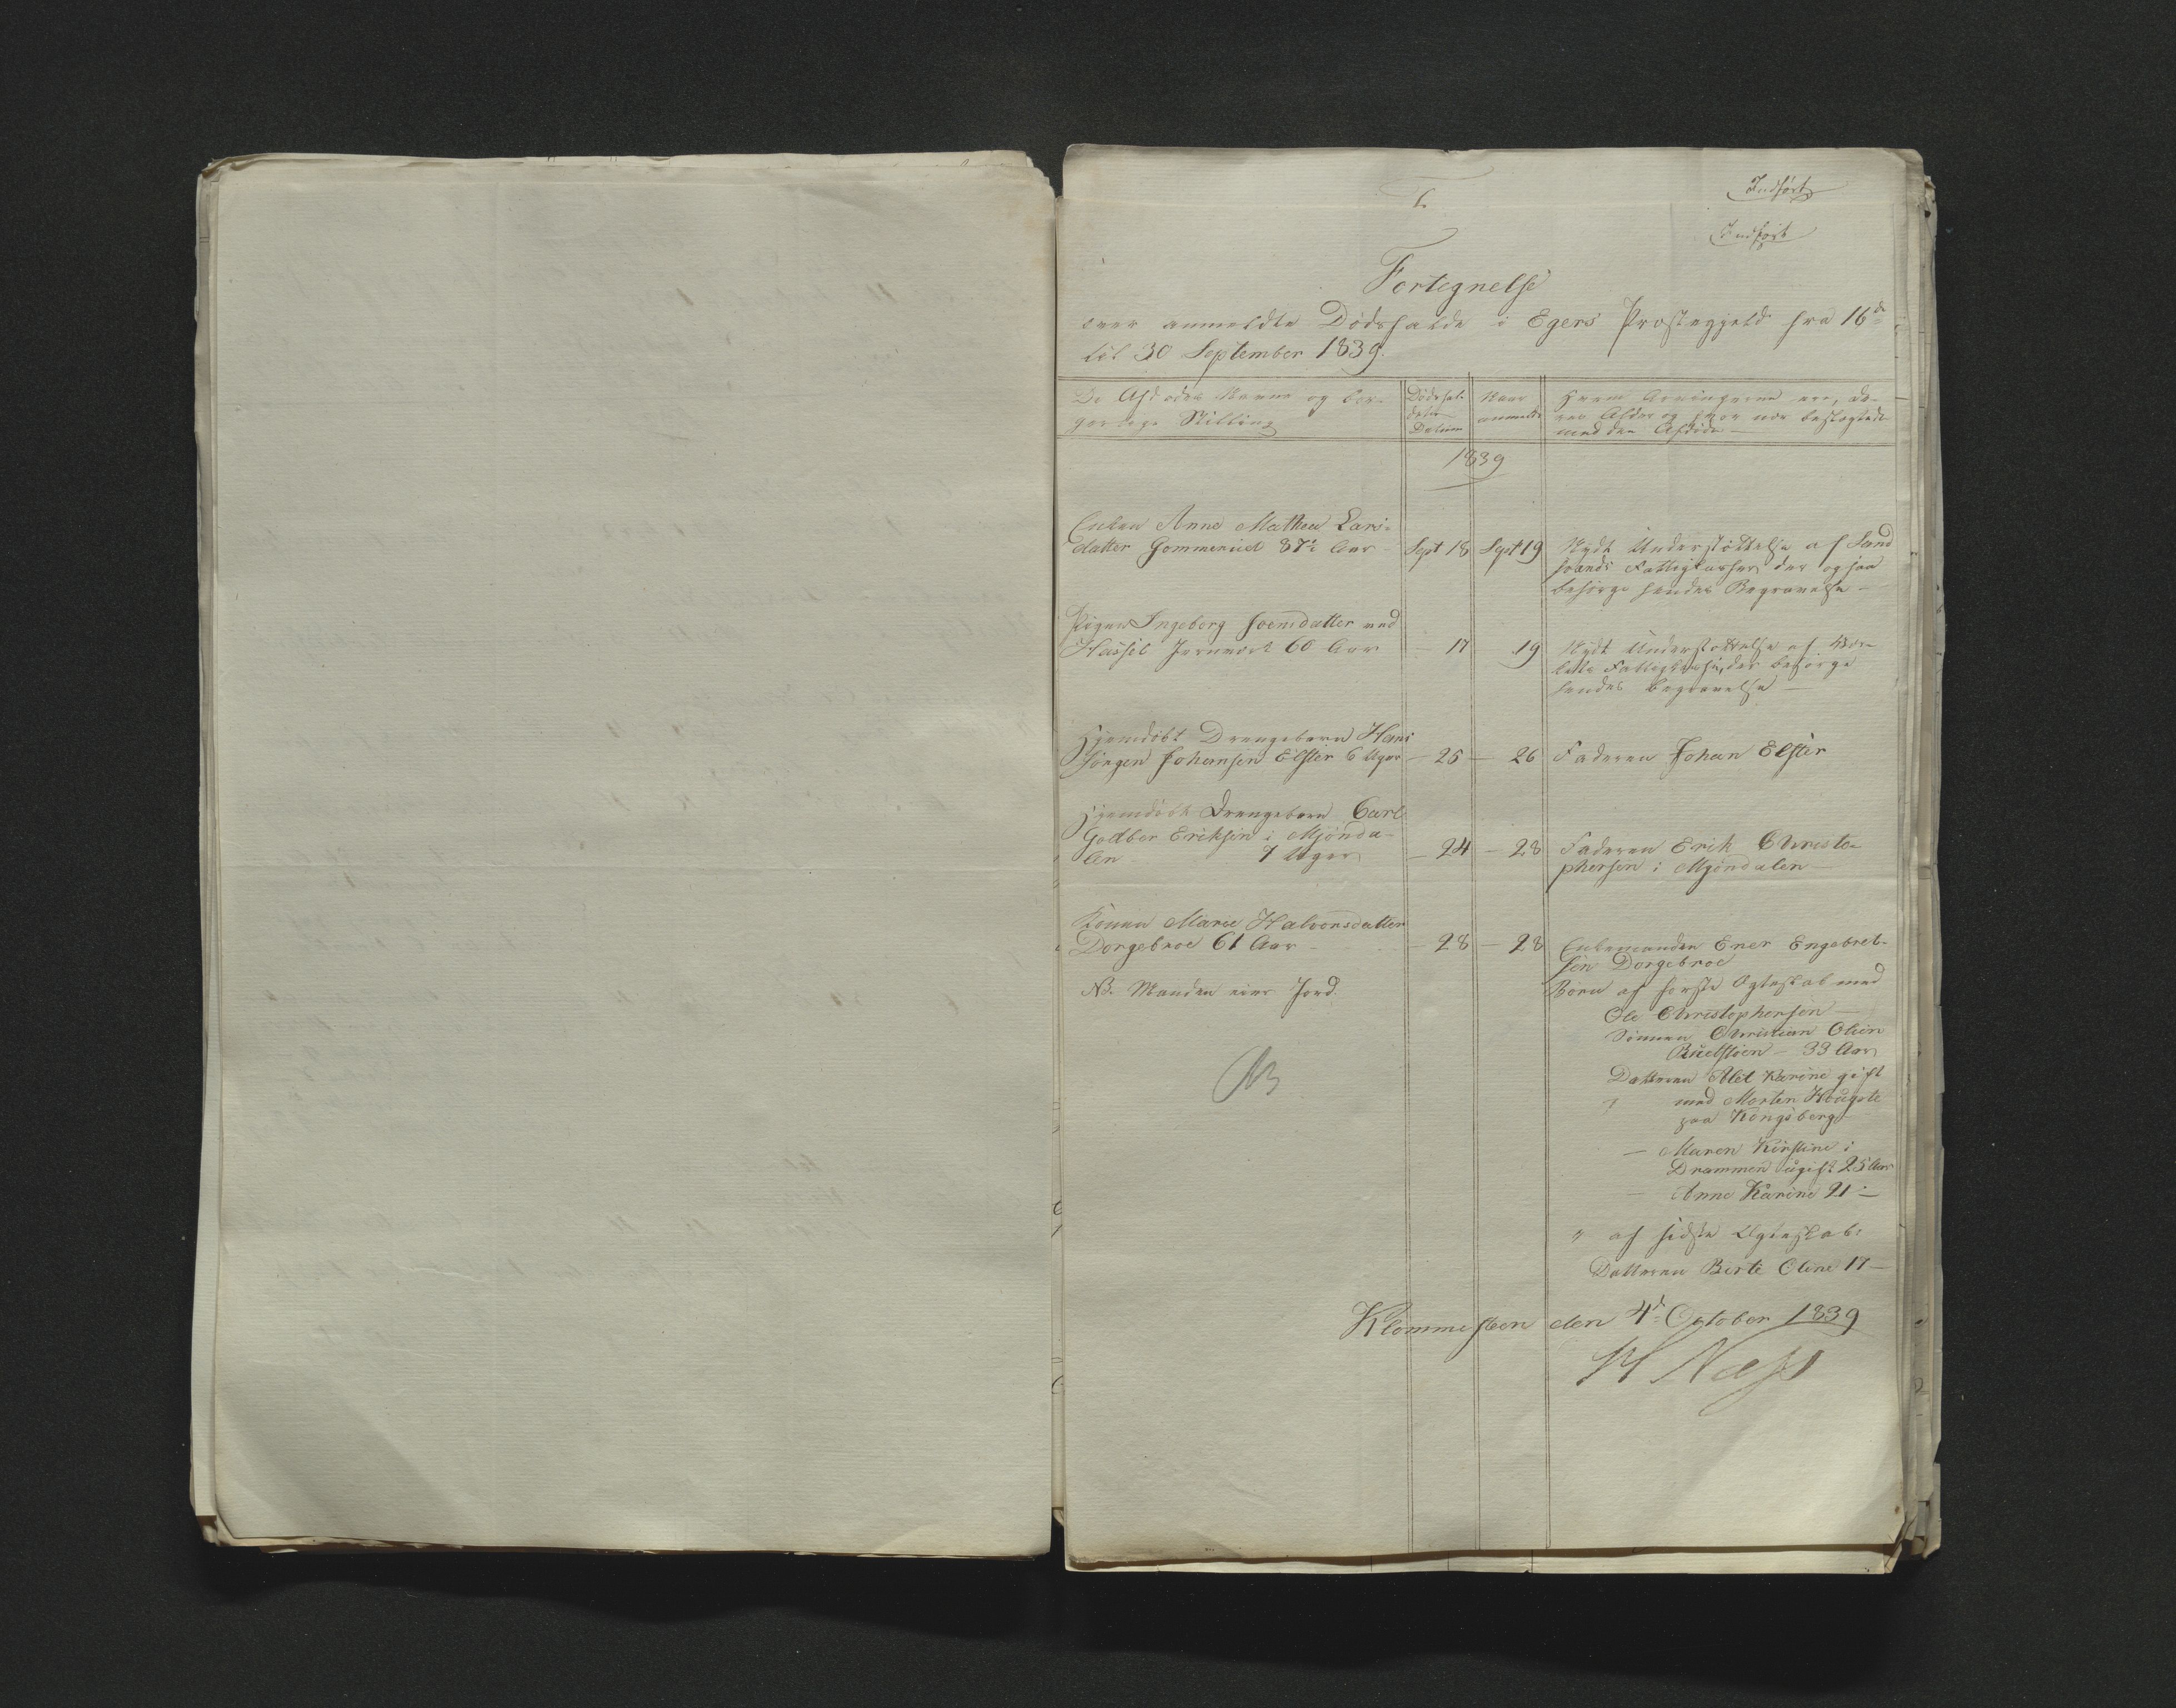 Indført
Indført
Fortegnelse
over anmeldte Dødsfalde i Egers Præstegjeld fra 16de
til 30 September 1839.
De Afdødes Navne og bor-
gerlige Stilling
Dødsfal-
dets
Datum
Naar
anmeldt
Hvem Arvingerne ere, de-
res Alder og hvor nær beslægtede
med den Afdøde
1839
Enken Anne Mathea Lars-
datter Gommerud 87½ Aar
Sept 18
Sept 19
Nydt Understøttelse af Sand
sværds Fattigkasse, der ogsaa
besørge hendes Begravelse
Pigen Ingeborg Joensdatter ved
Hassel Jernværk 60 Aar
- 17
19
Nydt Understøttelse af
Fattigkasse, der besørge
hendes Begravelse
Hjemdøbt Drengebarn Hans
Jørgen Johansen Elster 6 Uger
- 25
- 26
Faderen Johan Elster
Hjemdøbt Drengebarn Carl
Godber Eriksen i Mjønda-
len 7 Uger
- 24
- 28
Faderen Erik Christo-
phersen i Mjøndalen
Konen Marie Halvorsdatter
Dorgebroe 61 Aar
- 28
- 28
Enkemanden Ener Engebret-
sen Dorgebroe
NB. Manden eier Jord.
Børn af første Ægteskab med
Ole Christophersen
Sønnen Christian Olsen
33 Aar
Datteren Alet Karine gift
med Morten Kougste
paa Kongsberg
- Maren Kirstine i
Drammen ugift 25 Aar
- Anne Karine 21 -
" af sidste Ægteskab:
Datteren Berte Oline 17 -
NB
Klommesteen den 4de October 1839
H Næss